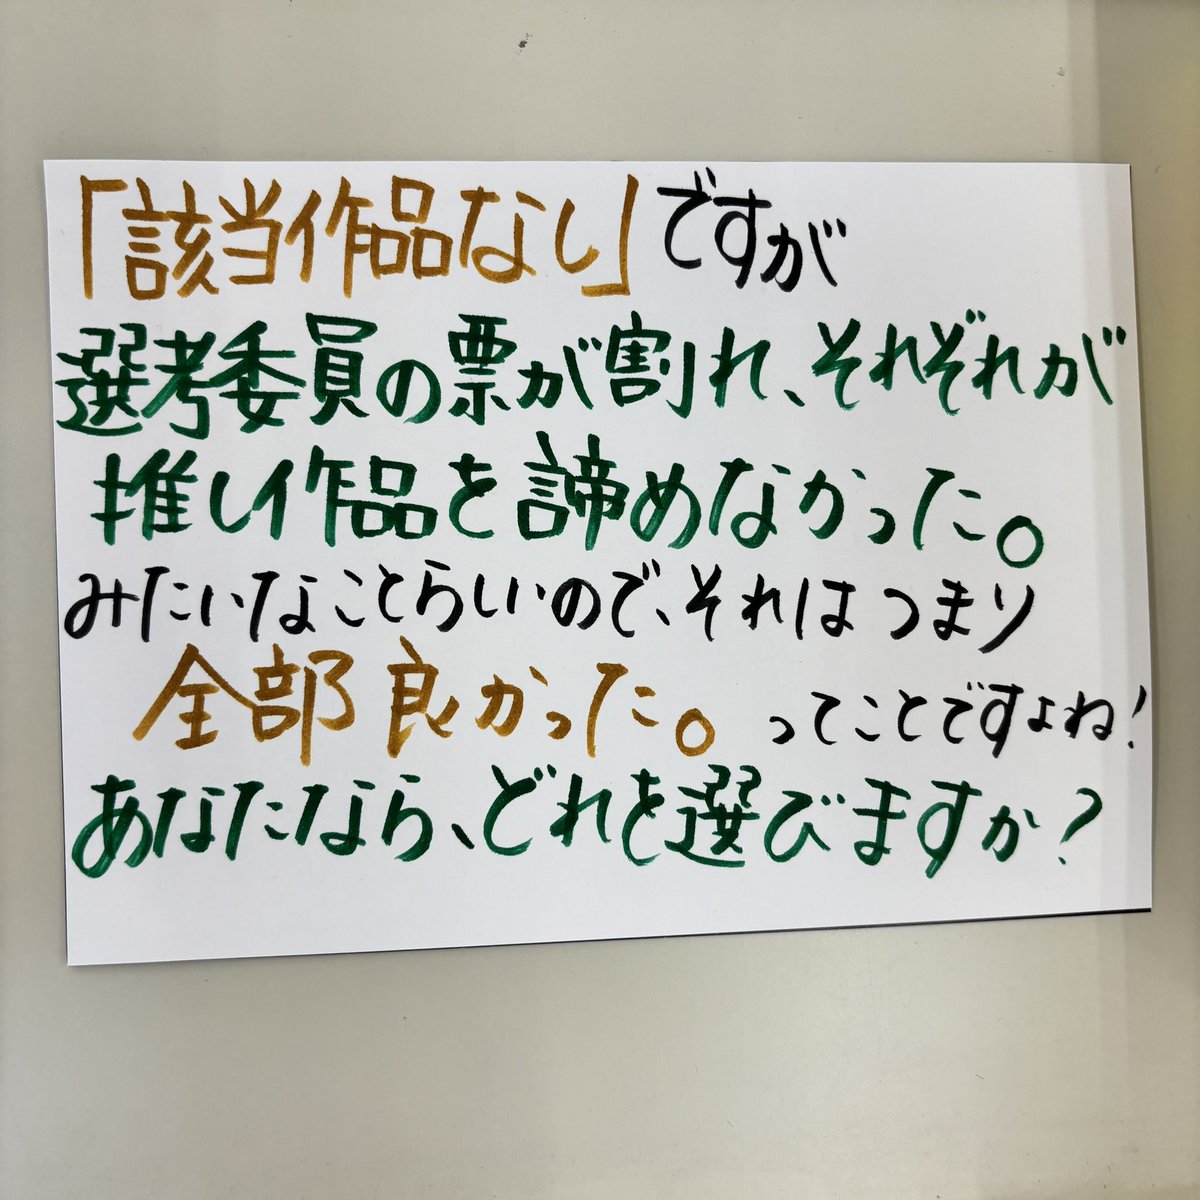 「該当作品なし」ですが
選考委員の票が割れ、それぞれが
推し作品を諦めなかった。
みたいなことらしいので、それはつまり
全部良かった。ってことですよね!
あなたなら、どれを選びますか?